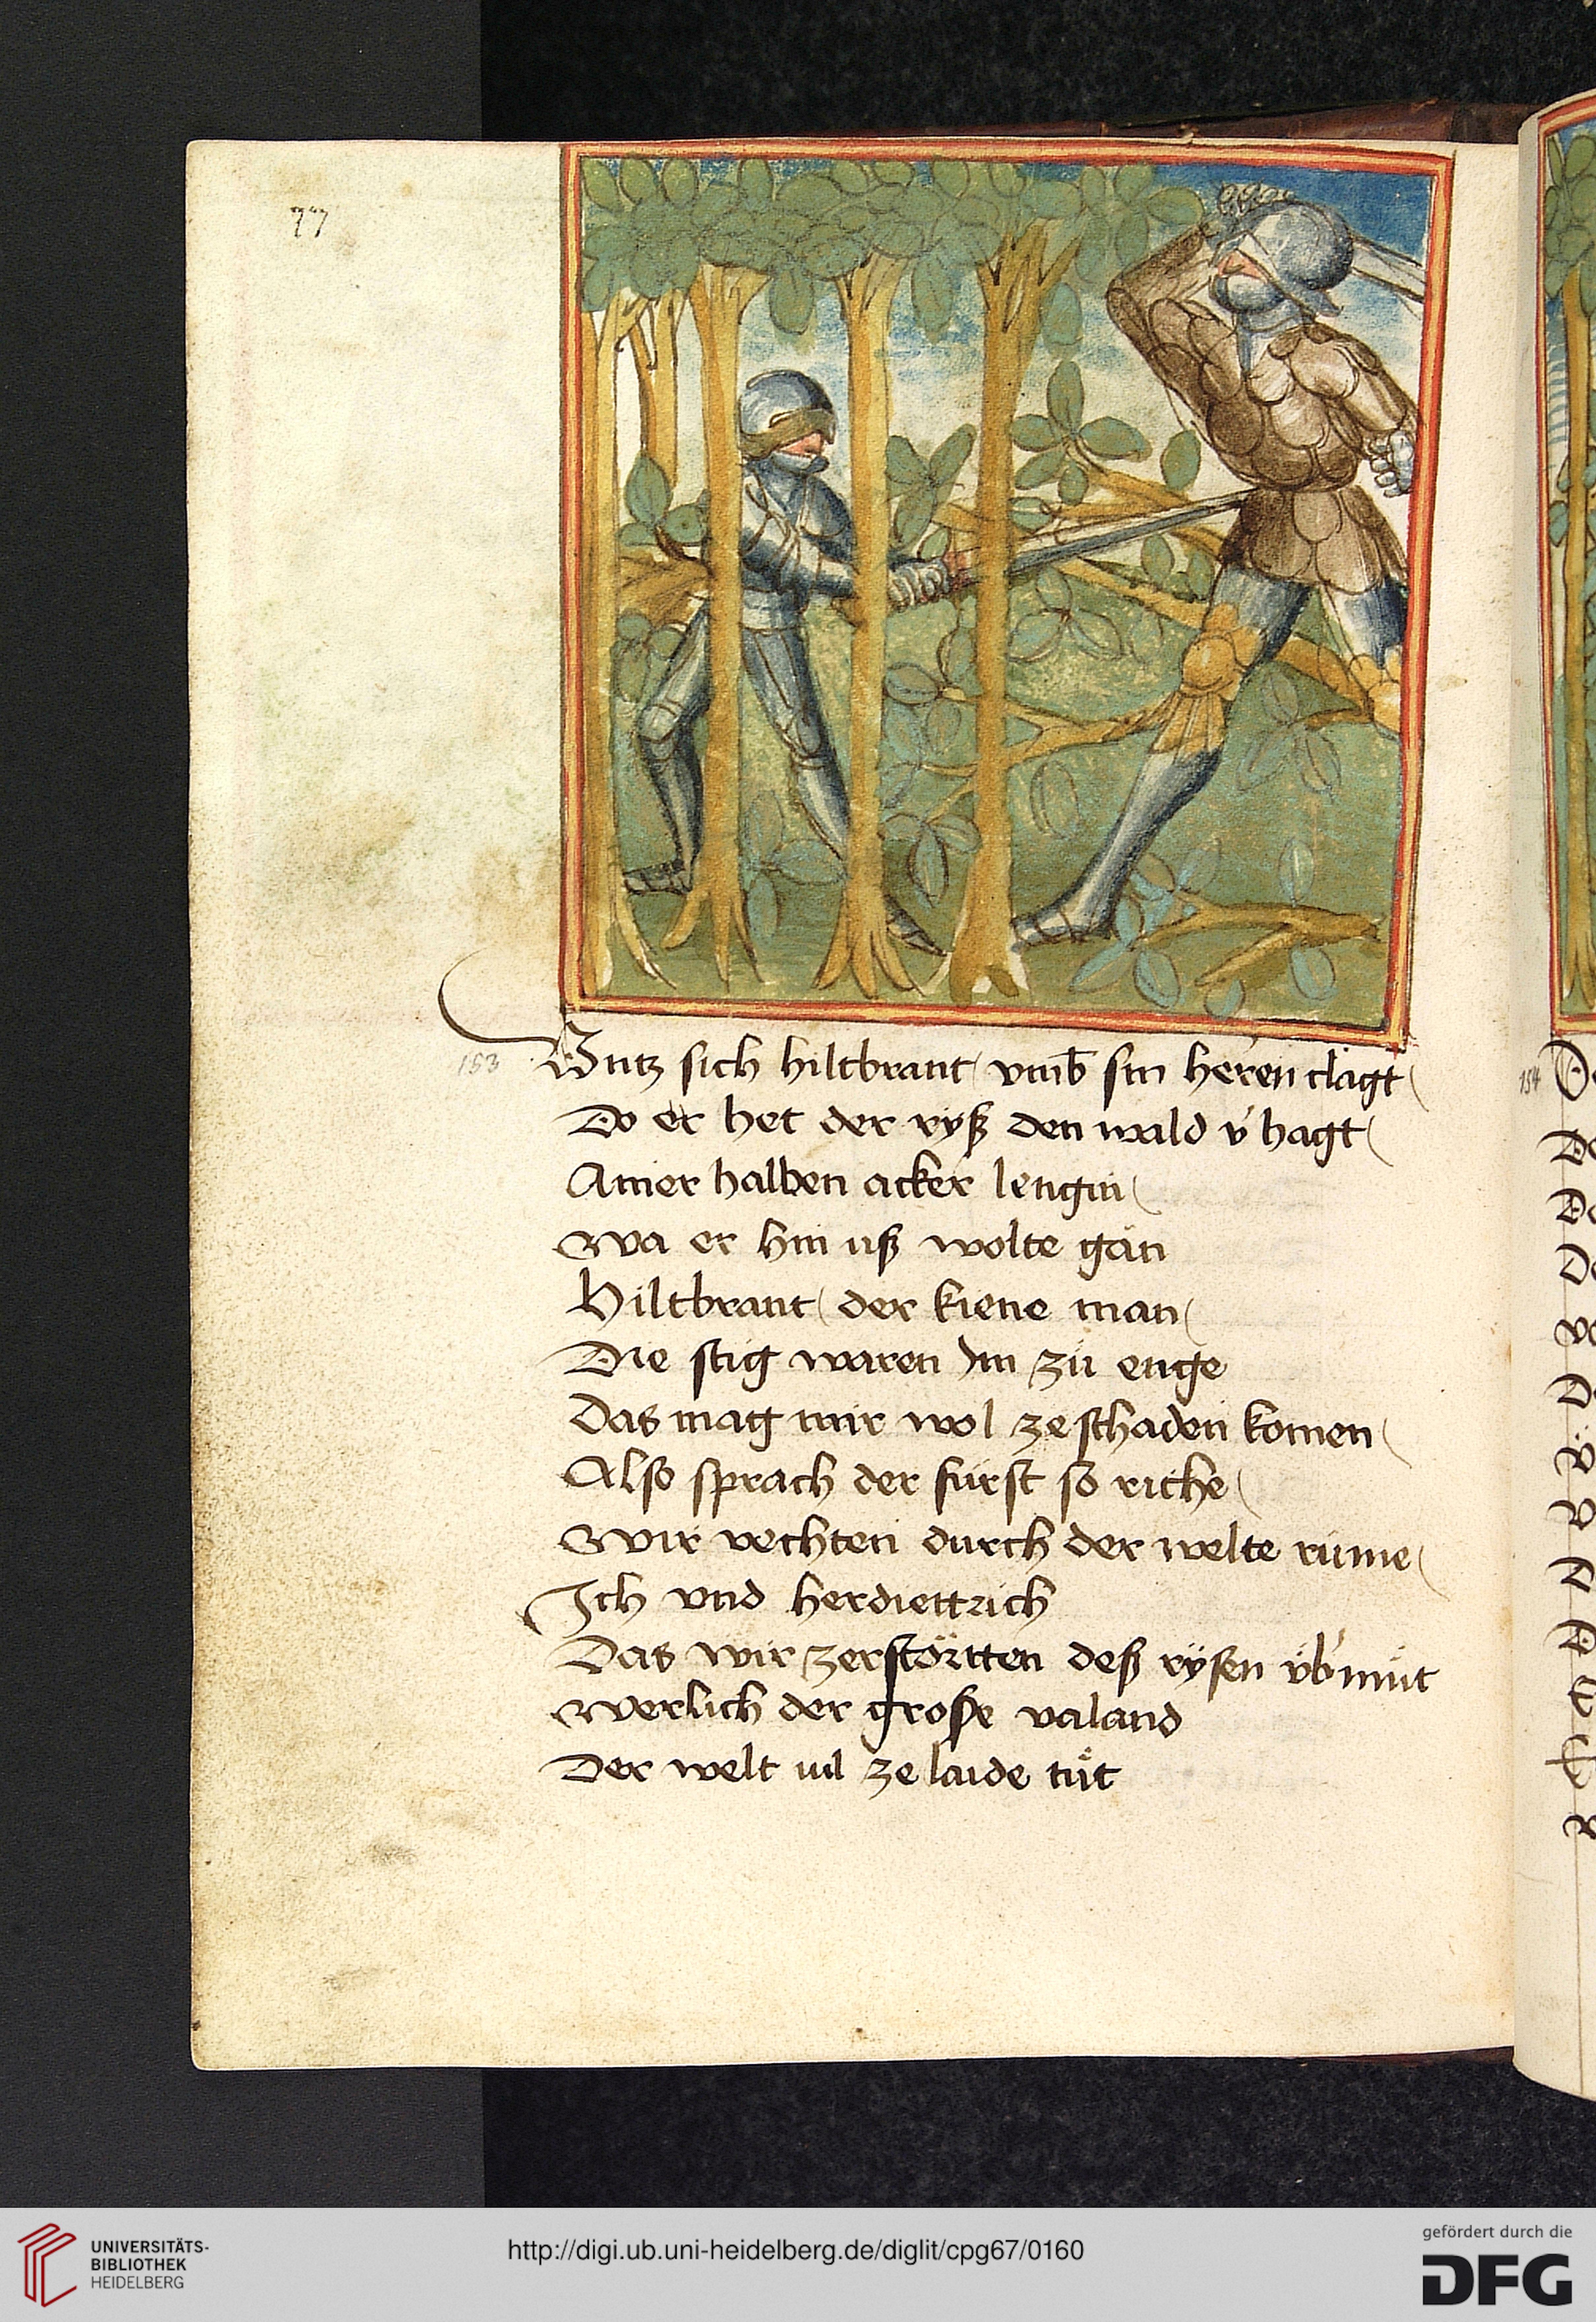 77
153
Untz sich hiltbrant vmb̄ sin herren clagt
Do er het der ryß den wald v́hagt
Ainer halben acker lengin
Wa er hin uß wolte gän
Hiltbrant der kiene man
Die stig waren Im zü enge
Das mag mir wol ze schaden komen
Also sprach der fürst so riche
Wir vechten durch der welte rüme
Ich vnd herdiettrich
Das wir zerstörtten deß rÿsen v̈b́müt
Werlich der große valand
Der welt vil ze laide tüt
154
UNIVERSITÄTS-
BIBLIOTHEK
HEIDELBERG
http://digi.ub.uni-heidelberg.de/diglit/cpg67/0160
gefördert durch die
DFG